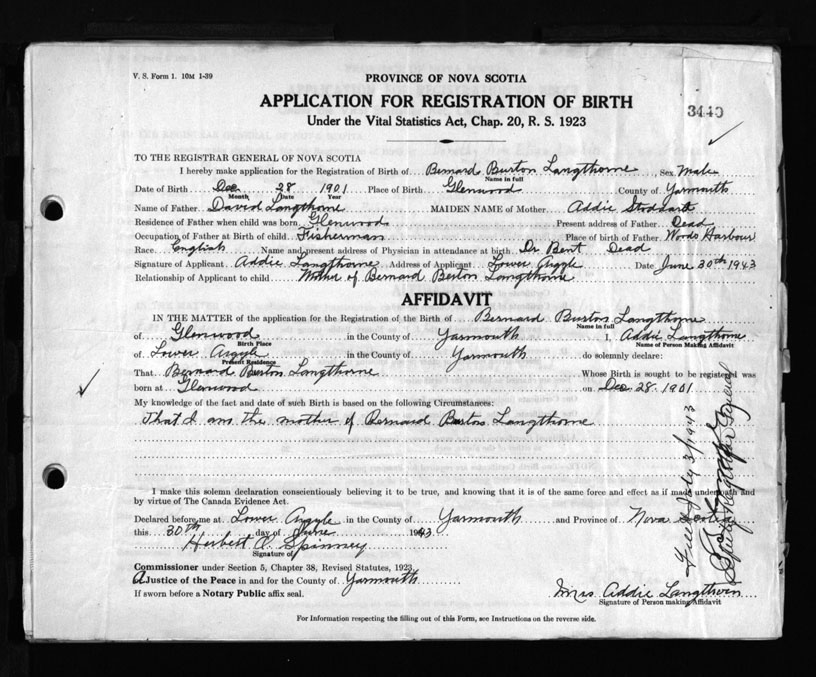 V. S. Form 1. 10M 1-39
PROVINCE OF NOVA SCOTIA
APPLICATION FOR REGISTRATION OF BIRTH
3440
Under the Vital Statistics Act, Chap. 20, R. S. 1923
TO THE REGISTRAR GENERAL OF NOVA SCOTIA
I hereby make application for the Registration of Birth of Bernard Burton Langthorne, Sex Male
Name in full
Date of Birth Dec 28 1901 Place of Birth Glenwood County of Yarmouth
Month Date Year
Name of Father David Langthorne MAIDEN NAME of Mother Addie Stoddart
Residence of Father when child was born Glenwood Present address of Father Dead
Occupation of Father at Birth of child Fisherman Place of birth of Father Woods Harbour
Race English Name and present address of Physician in attendance at birth Dr Bent Dead
Signature of Applicant Addie Langthorne Address of Applicant Lower Argyle Date June 30th 1943
Relationship of Applicant to child Mother of Bernard Berton Langthorne
AFFIDAVIT
IN THE MATTER of the application for the Registration of the Birth of Bernard Burton Langthorne
Name in full
of Glenwood in the County of Yarmouth I, Addie Langthorne
Birth Place Name of Person Making Affidavit
of Lower Argyle in the County of Yarmouth do solemnly declare:
Present Residence
That Bernard Burton Langthorne Whose Birth is sought to be registered was
born at Glenwood on Dec 28 1901
My knowledge of the fact and date of such Birth is based on the following Circumstances:
That I am the mother of Bernard Burton Langthorne
I make this solemn declaration conscientiously believing it to be true, and knowing that it is of the same force and effect as if made under oath and
by virtue of The Canada Evidence Act.
Declared before me at Lower Argyle in the County of Yarmouth and Province of Nova Scotia
this 30th day of June 1943
Herbert A. Spinney
Signature of
Commissioner under Section 5, Chapter 38, Revised Statutes, 1923
A Justice of the Peace in and for the County of Yarmouth
If sworn before a Notary Public affix seal.
Mrs Addie Langthorn
Signature of Person making Affidavit
For Information respecting the filling out of this Form, see Instructions on the reverse side.
Filed July 3/1943
Deputy Registrar General